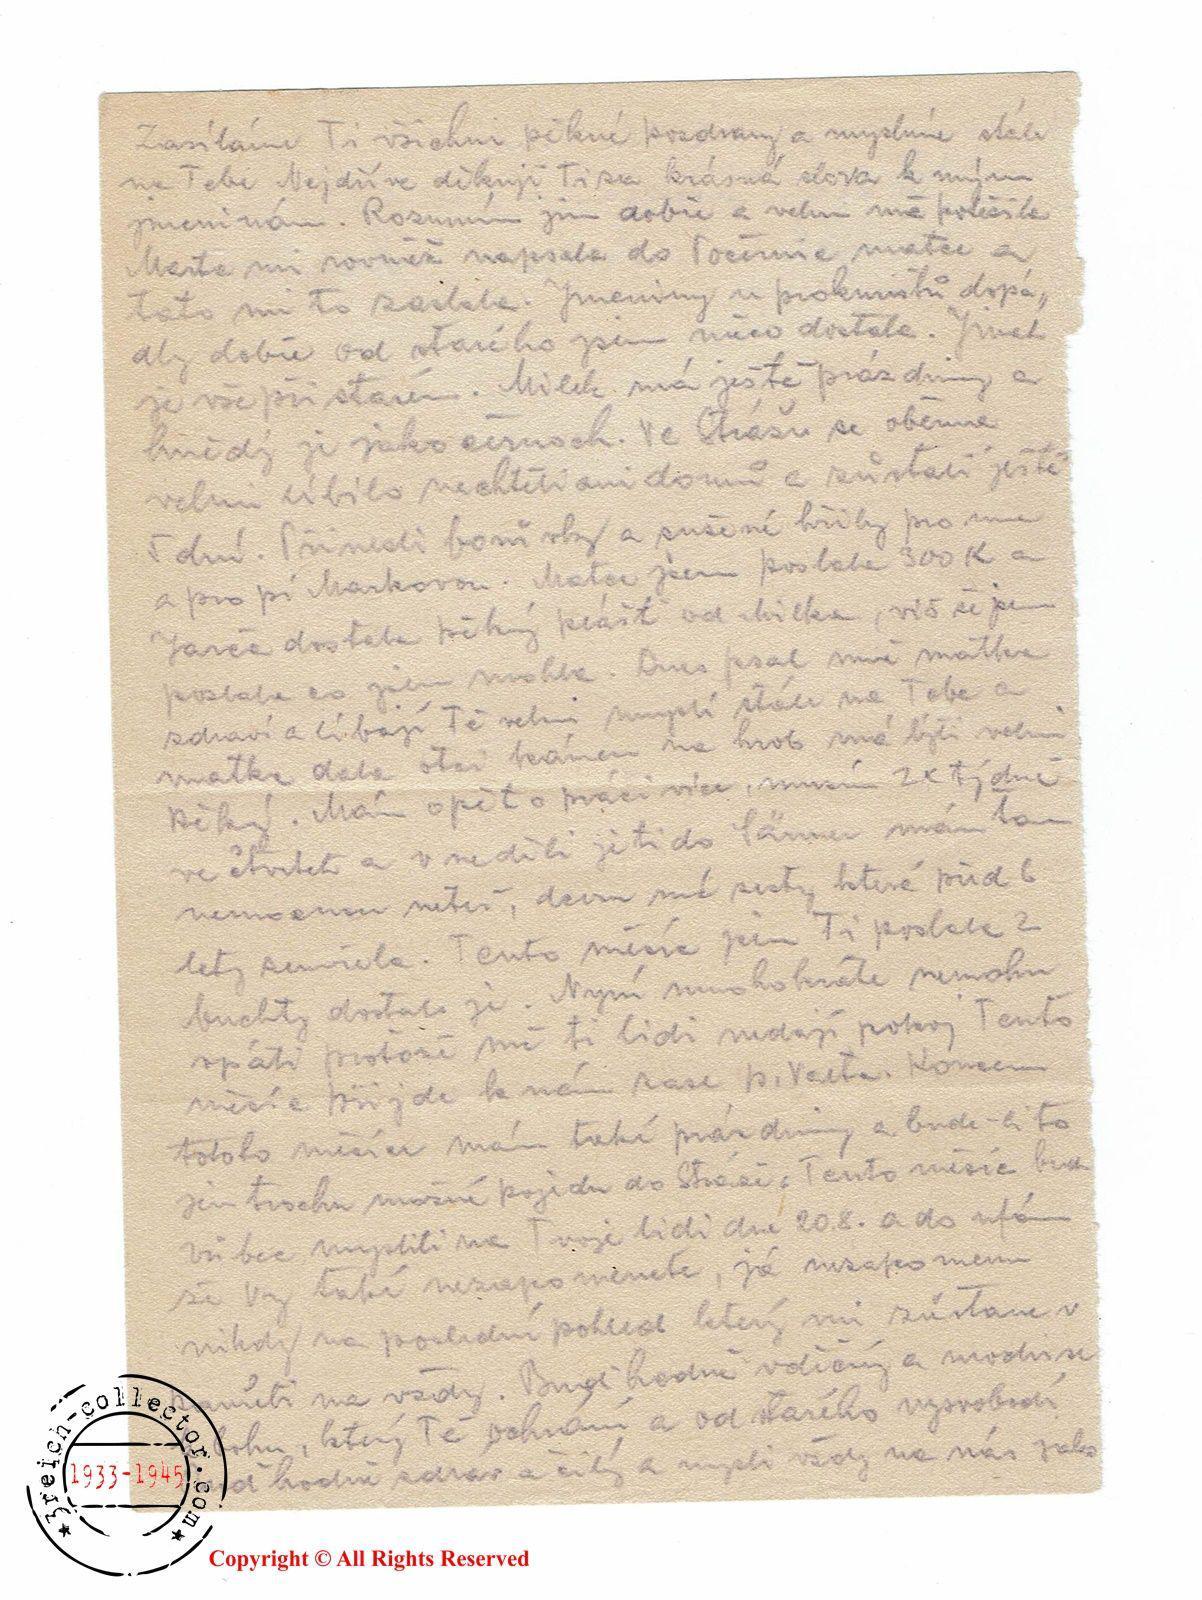 Zasíláme Ti všichni pěkné pozdravy a myslíme stále
na Tebe Nejdříve děkuji Ti za krásná slova k mým
jmeninám. Rozumím jim dobře a velmi mě potěšila
Marta mi rovněž napsala do Počernic matce a
tato mi to zaslala. Jmeniny u prokuristů dopá„
dly dobře od starého jsem něco dostala. Jinak
je vše při starém. Milek má ještě prázdniny a
hnědý je jako černoch. Ve Stráži se oběma
velmi líbilo nechtěli ani domů a zůstali ještě
dní. Přinesli borůvky a sušené hřiby pro mne
a pro pí Markovou. Matce jsem poslala 300 K a
Jarča dostala pěkný plášť od Milka, víš že jsem
poslala co jsem mohla. Dnes psal mně matka
zdraví a líbají Tě velmi myslí stále na Tebe a
matka dala otci kámen na hrob má býti velmi
pěkný. Mám opět o práci více, musím 2x týdně
ve čtvrtek a v neděli jeti do mám tam
nemocnou neteř, dceru mé sestry která před 6
lety zemřela. Tento měsíc jsem Ti poslala 2
buchty dostals je. Nyní mnohokráte nemohu
spáti protože mě ti lidi nedají pokoj Tento
měsíc přijde k nám zase p. Koncem
tohoto měsíce mám také prázdniny a bude-li to
jen trochu možné pojedu do Stráže. Tento měsíc bud
vůbec mysliti na Tvoje lidi dne 20.8. a do ufám
že Vy také nezapomenete, já nezapomenu
nikdy na poslední pohled který mi zůstane v
paměti na vždy. Buď hodně vděčný a modli se
bohu, který Tě ochrání a od starého vysvobodí
hodně zdráv a čilý a mysli vždy na nás jako
3reich-collector.com
1933-1945
Copyright © All Rights Reserved